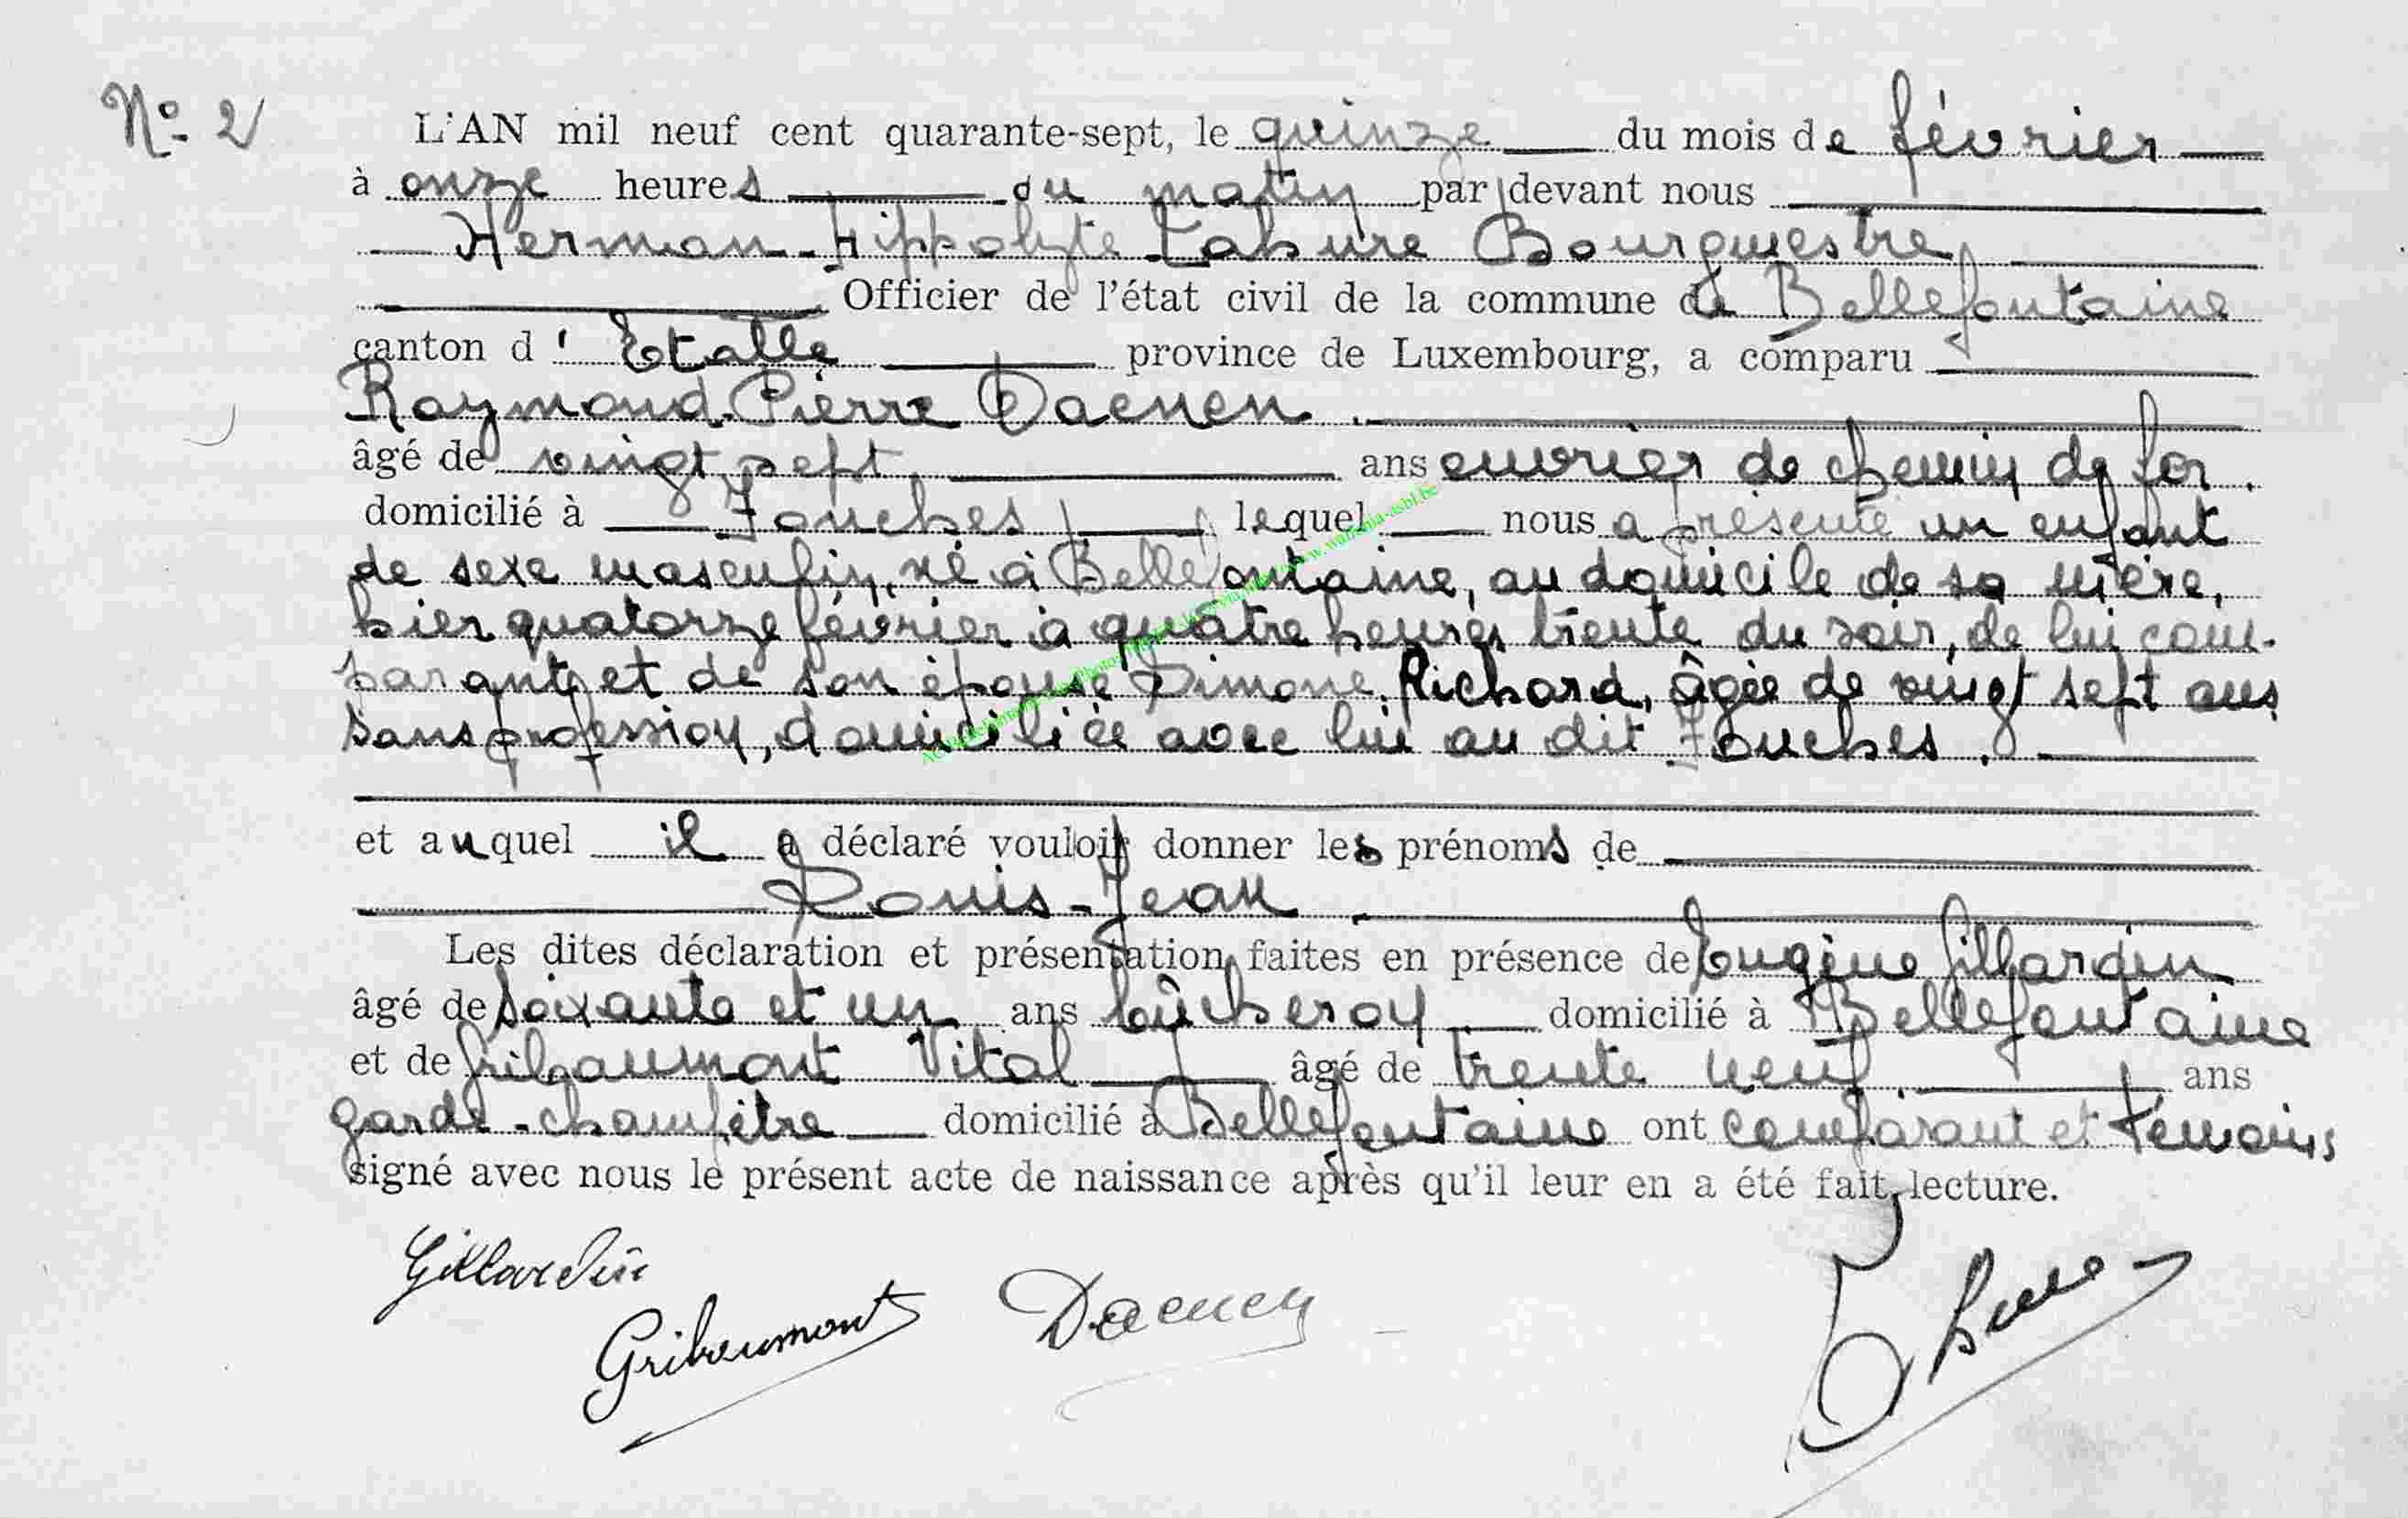 N° 2
L'AN mil neuf cent quarante-sept, le quinze du mois de février
à onze heures du matin par devant nous
Herman-Hippolyte Lahure Bourgmestre
Officier de l'état civil de la commune de Bellefontaine
canton d' Etalle province de Luxembourg, a comparu
Raymond-Pierre Daenen.
âgé de vingt sept ans ouvrier de chemin de fer.
domicilié à Fouches, lequel nous a présenté un enfant
de sexe masculin, né à Bellefontaine, au domicile de sa mère,
hier quatorze février à quatre heures trente du soir, de lui com-
parant, et de son épouse Simone Richard, âgée de vingt sept ans
sans profession, domiciliée avec lui au dit Fouches.
et auquel il a déclaré vouloir donner les prénoms de
Louis-Jean.
Les dites déclaration et présentation faites en présence de Eugène Gillardin
âgé de soixante et un ans bûcheron domicilié à Bellefontaine
et de Gribaumont Vital âgé de trente neuf ans
garde-champêtre domicilié à Bellefontaine ont comparant et témoins
signé avec nous le présent acte de naissance après qu'il leur en a été fait lecture.
Gillardin
Gribaumont Daenen